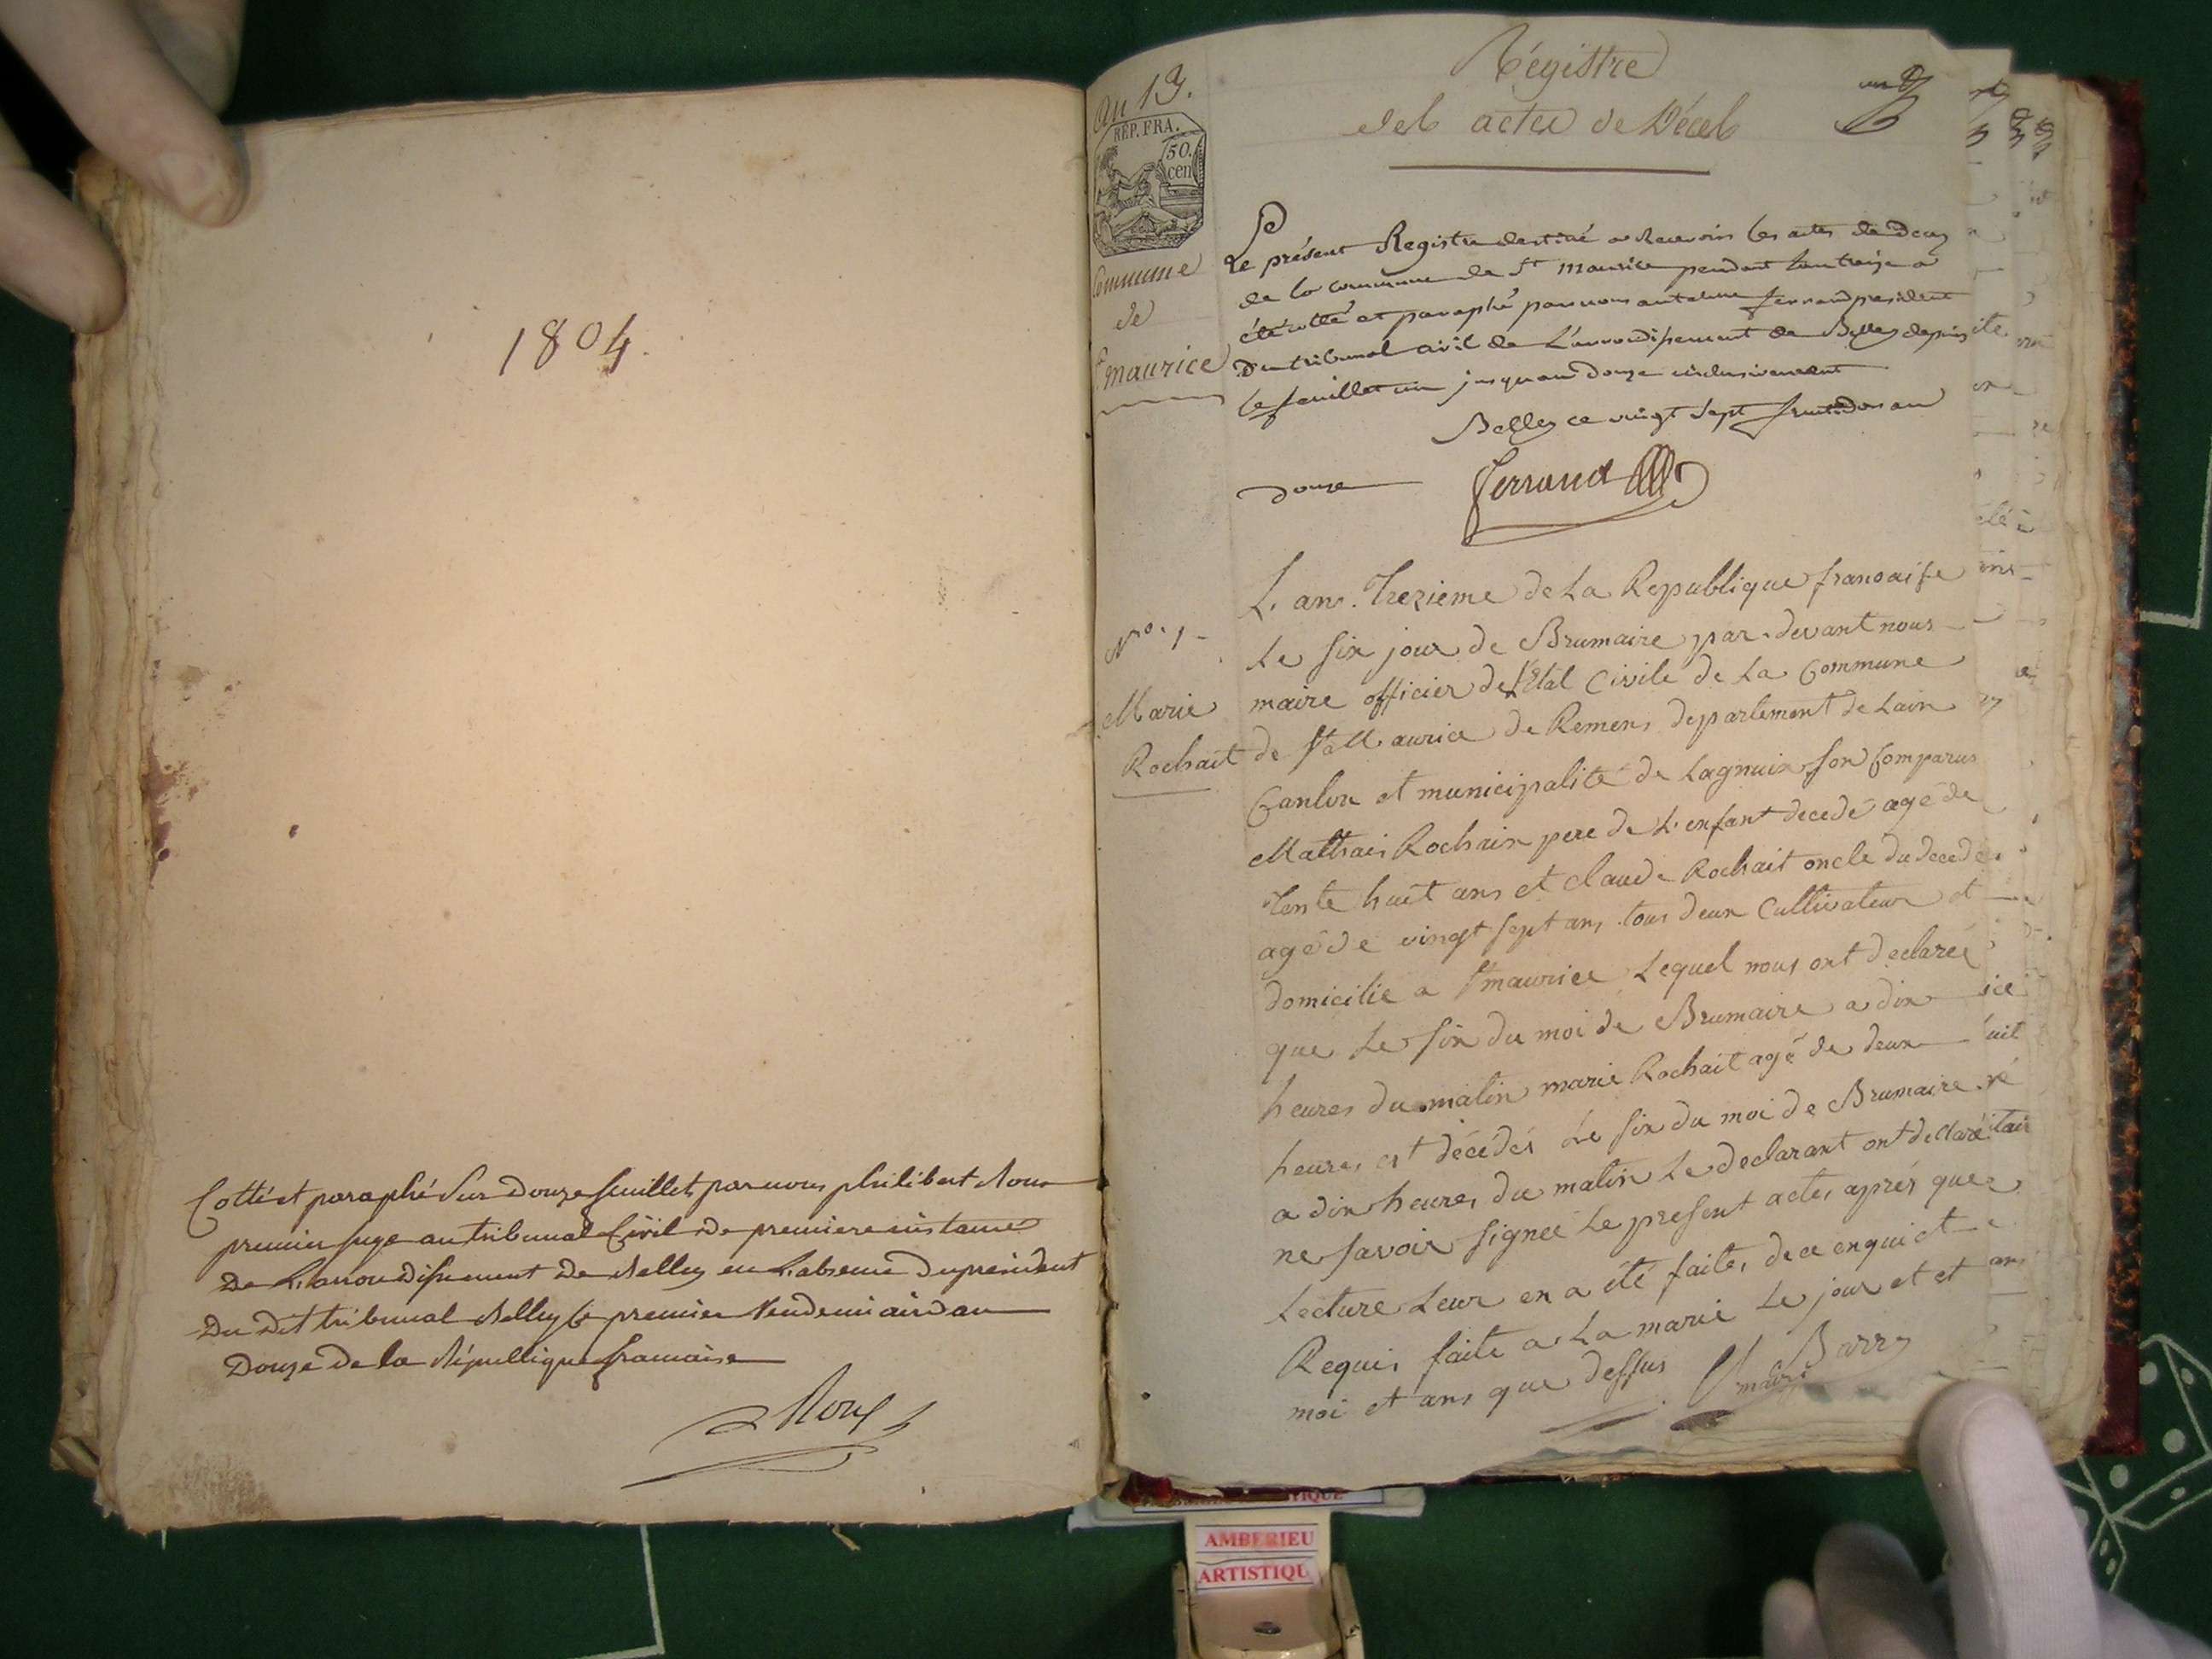 1804.
Cotté et paraphé sur douze feuillets par nous philibert Roux
premier juge au tribunal Civil de premiere instance
De L'arrondissement de Belley en L'absence du president
Du Dit tribunal Belley le premier Vendemiaire an
Douze De la République francaise
Roux
an 13.
REP. FRA.
50.
cen
Commune
de
St maurice
Régistre
des actes de Décès
un
Le présent Registre destiné a Recevoir les actes de Deces
de la commune de St maurice pendant l'an treize a
été cotté et paraphé par nous anthelme ferrand president
Du tribunal civil de L'arrondissement de Belley depuis
le feuillet un jusquau Douze inclusivement
Belley ce vingt sept fructidor an
douze
ferrand
No. 1
Marie
Rochait
L. an. Trezieme de La Republique francaise
Le six jour de Brumaire par devant nous
maire officier de l'Etat Civile de La Commune
de St Maurice de Remens departement de Lain
Canton et municipalité de Lagnuix son Comparus
Matthais Rochaix pere de L'enfant decedé agé de
Tente huit ans et claude Rochait oncle du decedé
agé de vingt sept ans tous deux Cultivateur et
domicilie a St maurice Lequel nous ont declareé
que Le six du moi de Brumaire a dix
heures du matin marie Rochait agé de deux
heures est décédés Le six du moi de Brumaire
a dix heures du matin Le declarant ont dellaré
ne savoir signeé Le present actes aprés que
Lecture Leur en a été faites de ce enquis et
Requis faite a La marie Le jour et et
moi et ans que dessus
Barry
maire
AMBERIEU
ARTISTIQU